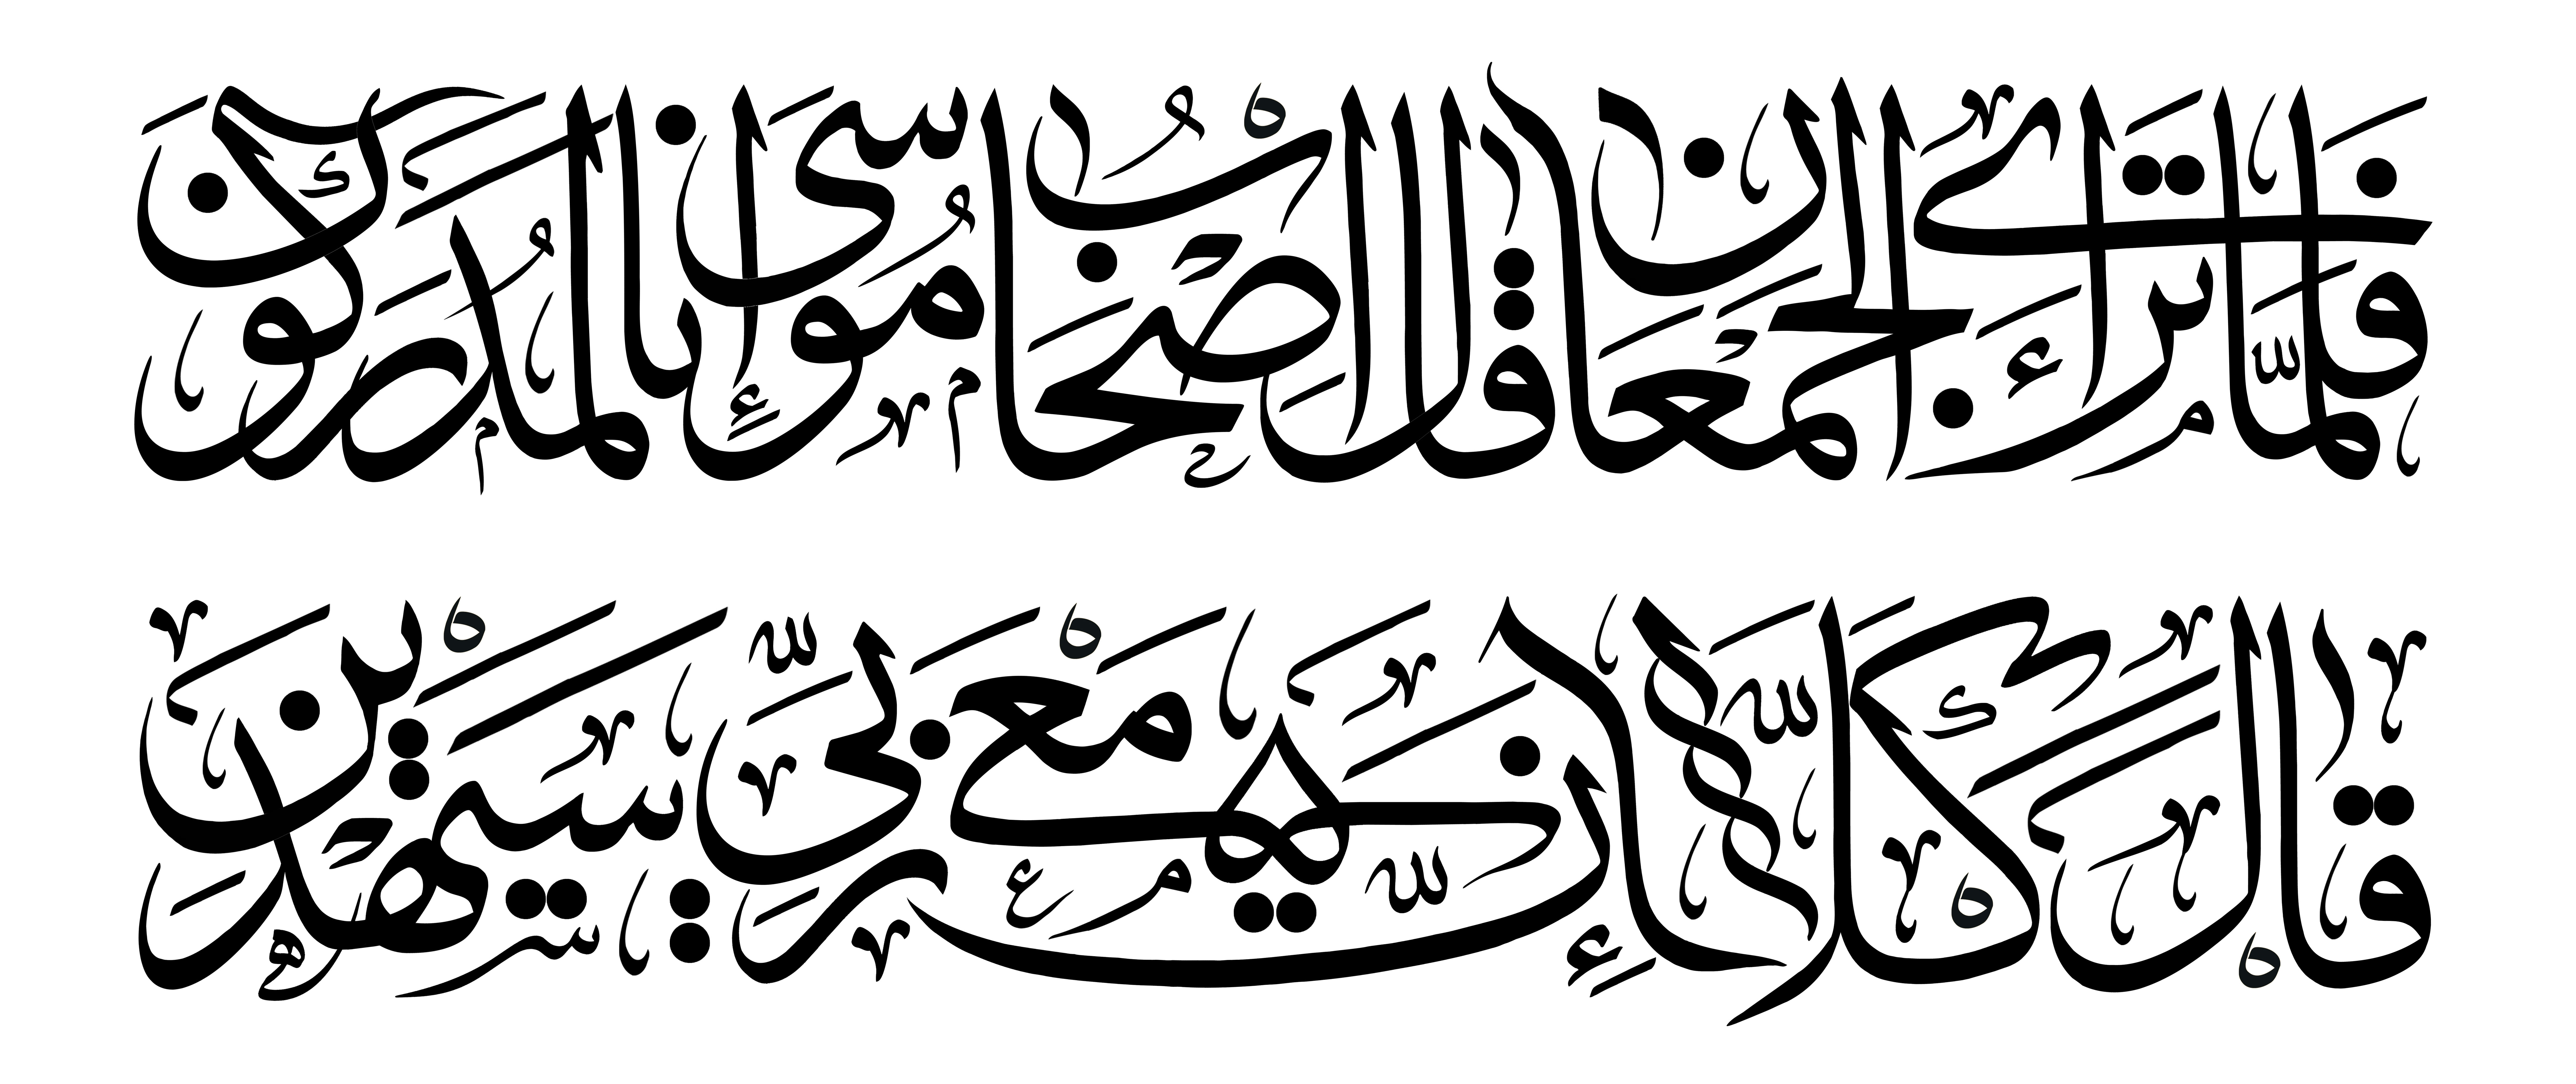 فَلَمَّا تَرَاءَى الْجَمْعَانِ قَالَ أَصْحَابُ مُوسَى إِنَّا لَمُدْرَكُونَ
قَالَ كَلَّا إِنَّ مَعِيَ رَبِّي سَيَهْدِينِ